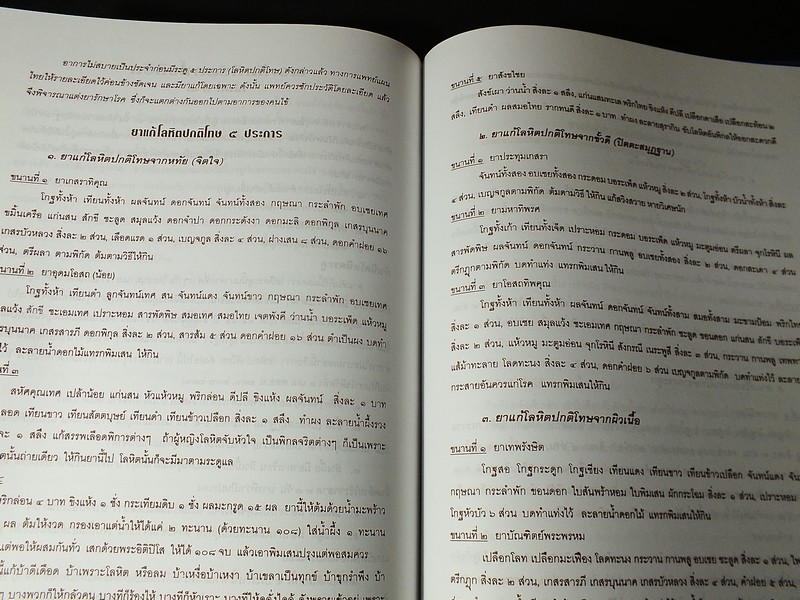 อาการไม่สบายเป็นประจำก่อนมีระดู ๕ ประการ (โลหิตปกติโทษ) ดังกล่าวแล้ว ทางการแพทย์แผน
ไทยให้รายละเอียดไว้ค่อนข้างชัดเจน และมียาแก้โดยเฉพาะ ดังนั้น แพทย์ควรซักประวัติโดยละเอียด แล้ว
จึงพิจารณาแต่งยารักษาโรค ซึ่งก็จะแตกต่างกันออกไปตามอาการของคนไข้
ยาแก้โลหิตปกติโทษ ๕ ประการ
๑. ยาแก้โลหิตปกติโทษจากหทัย (จิตใจ)
ขนานที่ ๑ ยาเกสราทิคุณ
โกฐทั้งห้า เทียนทั้งห้า ผลจันทน์ ดอกจันทน์ จันทน์ทั้งสอง กฤษณา กระลำพัก อบเชยเทศ
ขมิ้นเครือ แก่นสน สักขี ชะลูด สมุลแว้ง ดอกจำปา ดอกกระดังงา ดอกมะลิ ดอกพิกุล เกสรบุนนาค
เกสรบัวหลวง สิ่งละ ๒ ส่วน, เลือดแรด ๑ ส่วน, เบญจกูล สิ่งละ ๔ ส่วน, ฝางเสน ๘ ส่วน, ดอกคำฝอย ๑๖
ส่วน, ตรีผลา ตามพิกัด ต้มตามวิธีให้กิน
ขนานที่ ๒ ยาอุดมโอสถ (น้อย)
โกฐทั้งห้า เทียนดำ ลูกจันทน์เทศ สน จันทน์แดง จันทน์ขาว กฤษณา กระลำพัก อบเชยเทศ
แว้ง สักขี ชะเอมเทศ เปราะหอม สารพัดพิษ สมอเทศ สมอไทย เจตพังคี ว่านน้ำ บอระเพ็ด แห้วหมู
บุนนาค เกสรสารภี ดอกพิกุล สิ่งละ ๒ ส่วน, สารส้ม ๕ ส่วน ดอกคำฝอย ๑๖ ส่วน ตำเป็นผง บดทำ
ไว้ ละลายน้ำดอกไม้แทรกพิมเสน ให้กิน
ที่ ๓
สหัศคุณเทศ เปล้าน้อย แก่นสน หัวแห้วหมู พริกล่อน ดีปลี ขิงแห้ง ผลจันทน์ สิ่งละ ๑ บาท
ลอด เทียนขาว เทียนสัตตบุษย์ เทียนดำ เทียนข้าวเปลือก สิ่งละ ๑ สลึง ทำผง ละลายน้ำผึ้งรวง
ละ ๑ สลึง แก้สรรพเลือดพิการต่างๆ ถ้าผู้หญิงโลหิตจับหัวใจ เป็นพิกลจริตต่างๆ ก็เป็นเพราะ
ตนั้นถ่ายเดียว ให้กินยานี้ไป โลหิตนั้นก็จะมีมาตามระดูแล
๔
พริกล่อน ๔ บาท ขิงแห้ง ๑ ชั่ง กระเทียมดิบ ๑ ชั่ง ผลมะกรูด ๑๕ ผล ยานี้ให้ต้มด้วยน้ำมะพร้าว
ผล ต้มให้งวด กรองเอาแต่น้ำให้ได้แค่ ๒ ทะนาน (ด้วยทะนาน ๑๐๘) ใส่น้ำผึ้ง ๑ ทะนาน
แต่พอให้ผสมกันทั่ว เสกด้วยพระอิติปิโส ให้ได้ ๑๐๘ จบ แล้วเอาพิมเสนปรุงแต่พอสมควร
นี้แก้บ้าดีเดือด บ้าเพราะโลหิต หรือลม บ้าเหงื่อบ้าเหงา บ้าเขลาเป็นทุกข์ บ้าซุกรำพึง บ้า
ๆ บางพวกก็ให้กลัวคน บางทีก็ร้องไห้ บางทีก็หัวเราะ
ขนานที่ ๕ ยาสังขไชย
สังข์เผา ว่านน้ำ สิ่งละ ๑ สลึง, แก่นแสมทะเล พริกไทย ขิงแห้ง ดีปลี เปลือกตาเสือ เปลือกสะท้อน ๒
สลึง, เทียนดำ ผลสมอไทย รากทนดี สิ่งละ ๑ บาท ทำผง ละลายสุรากิน ขับโลหิตอันพิกลให้ออกสะดวกดี
๒. ยาแก้โลหิตปกติโทษจากขั้วดี (ปิตตะสมุฏฐาน)
ขนานที่ ๑ ยาประทุมเกสรา
จันทน์ทั้งสอง อบเชยทั้งสอง กระดอม บอระเพ็ด แห้วหมู สิ่งละ ๒ ส่วน, โกฐทั้งห้า บัวน้ำทั้งห้า สิ่งละ
๔ ส่วน, เบญจกูลตามพิกัด ต้มตามวิธี ให้กิน แก้สวิงสวาย หายวิเศษนัก
ขนานที่ ๒ ยามหาทิพรศ
โกฐทั้งเก้า เทียนทั้งเจ็ด เปราะหอม กระดอม บอระเพ็ด แห้วหมู มะตูมอ่อน ตรีผลา จุกโรหินี ผล
สารพัดพิษ ผลจันทน์ ดอกจันทน์ กระวาน กานพลู อบเชยทั้งสอง สิ่งละ ๒ ส่วน, ดอกสะเดา ๔ ส่วน
ตรีกฏุกตามพิกัด บดทำแท่ง แทรกพิมเสนให้กิน
ขนานที่ ๓ ยาโอสถทิพคุณ
โกฐทั้งห้า เทียนทั้งห้า ผลจันทน์ ดอกจันทน์ จันทน์ทั้งสาม สมอทั้งสาม มะขามป้อม พริกไทย
สิ่งละ ๑ ส่วน, อบเชย สมุลแว้ง ชะเอมเทศ กฤษณา กระลำพัก ชะลูด ขอนดอก แก่นสน สักขี บอระเพ็ด
สิ่งละ ๒ ส่วน, แห้วหมู มะตูมอ่อน จุกโรหินี สังกรณี เนระพูสี สิ่งละ ๑ ส่วน, กระวาน กานพลู เทพทาโร
แส้ม้าทะลาย โลดทะนง สิ่งละ ๔ ส่วน, ดอกคำฝอย ๖ ส่วน เบญจกูลตามพิกัด บดทำแท่งไว้ ละลาย
กระสายอันควรแก่โรค แทรกพิมเสนให้กิน
๓. ยาแก้โลหิตปกติโทษจากผิวเนื้อ
ขนานที่ ๑ ยาเทพรังษิต
โกฐสอ โกฐกระดูก โกฐเชียง เทียนแดง เทียนขาว เทียนข้าวเปลือก จันทน์แดง
กฤษณา กระลำพัก ขอนดอก ใบสันพร้าหอม ใบพิมเสน ผักกระโฉม สิ่งละ ๑ ส่วน, เปราะหอม
โกฐหัวบัว ๖ ส่วน บดทำแท่งไว้ ละลายน้ำดอกไม้ แทรกพิมเสนให้กิน
ขนานที่ ๒ ยาบัณฑิตย์พระพรหม
เปลือกโลท เปลือกมะเฟือง โลดทะนง กระวาน กานพลู อบเชย ชะลูด สิ่งละ ๑ ส่วน,
ตรีกฏุก สิ่งละ ๒ ส่วน, เกสรสารภี เกสรบุนนาค เกสรบัวหลวง สิ่งละ ๔ ส่วน, ดอกคำฝอย ๕ ส่วน,